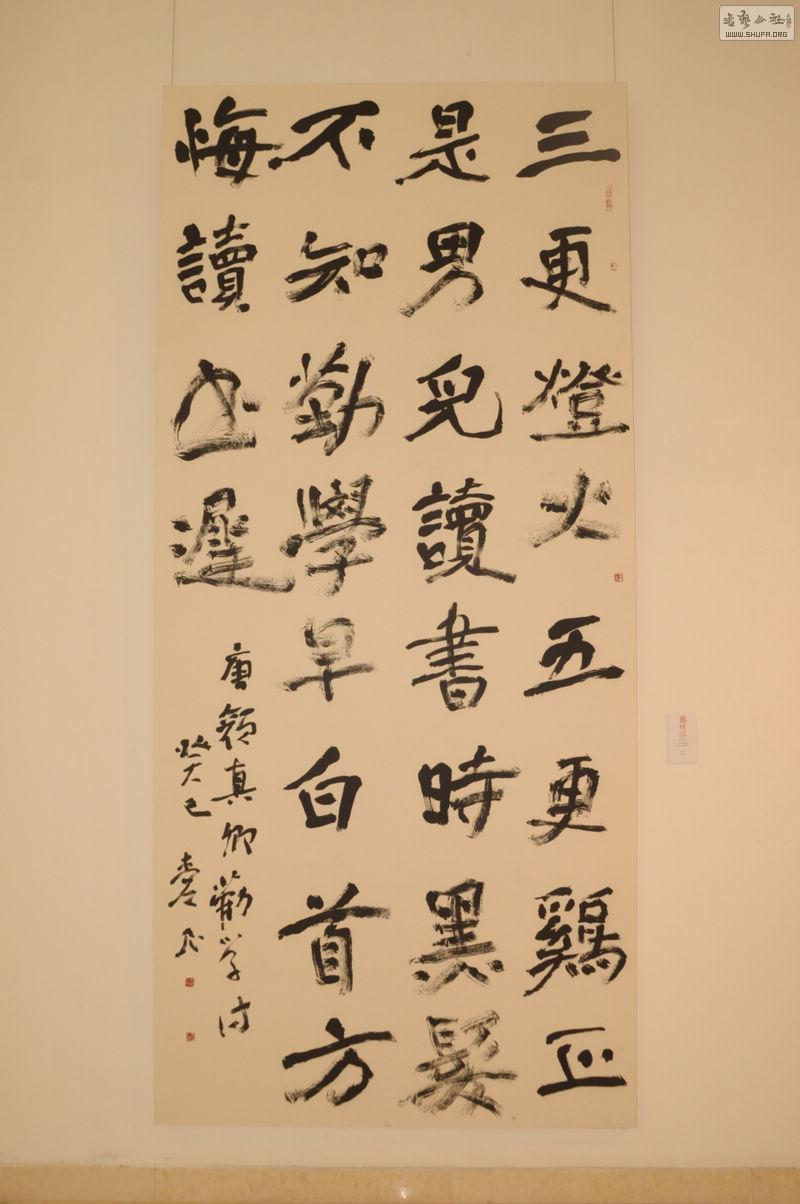 三更燈火五更鷄正
是男兒讀書時黑髮
不知勤學早白首方
悔讀書遲
唐顏真卿勸學詩
癸巳
書藝公社
WWW.SHUFA.ORG